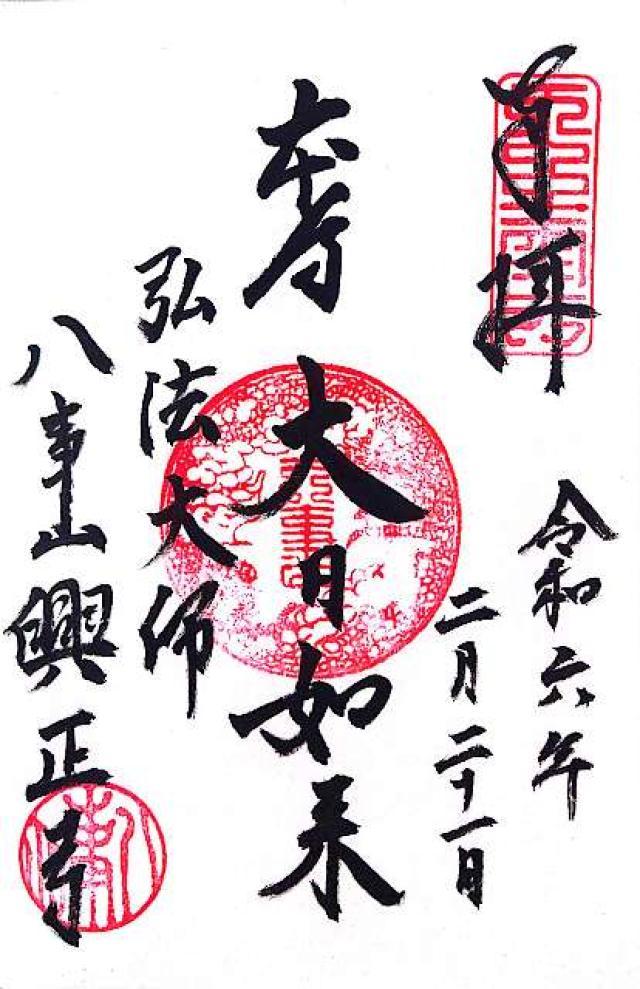 奉拝
令和六年
二月二十一日
本尊
大日如来
弘法大師
八事山興正寺